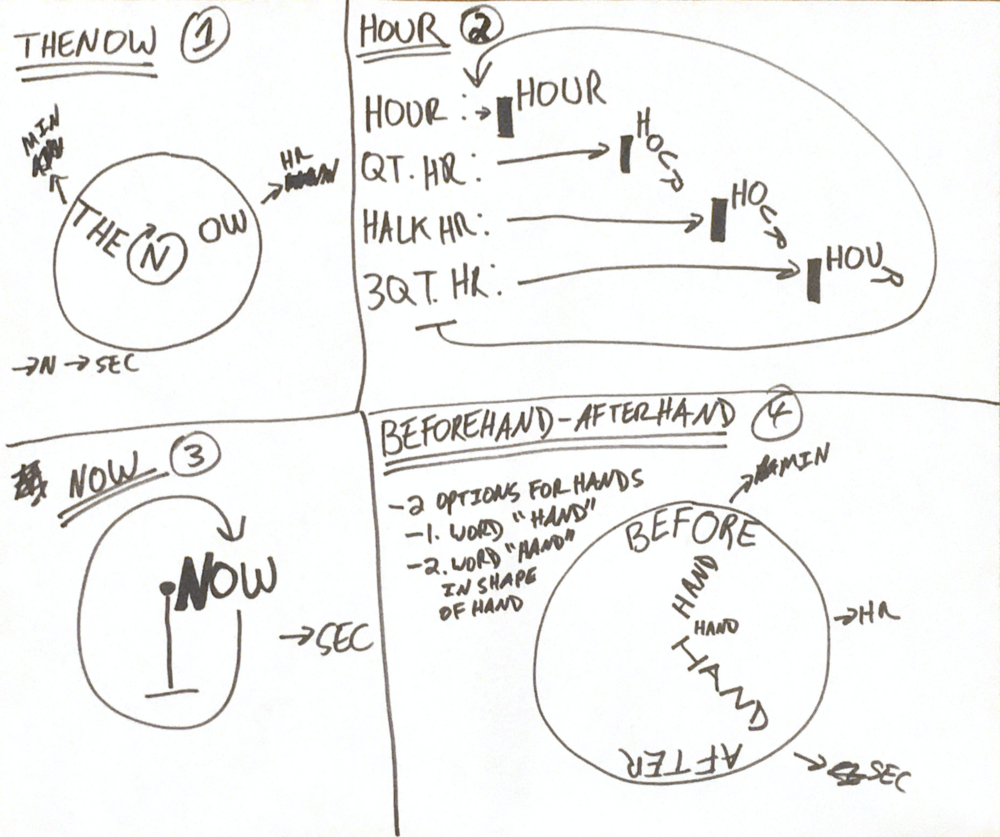 THENOW 1
MIN
HR
THE N OW
→N → SEC
HOUR 2
HOUR : → HOUR
QT. HR: → HOUR
HALK HR: → HOUR
3QT. HR: → HOUR
NOW 3
NOW
→ SEC
BEFOREHAND-AFTERHAND 4
-2 OPTIONS FOR HANDS
-1. WORD "HAND"
-2. WORD "HAND"
IN SHAPE
OF HAND
MIN
BEFORE
HAND
HAND
HAND
AFTER
→HR
→ SEC